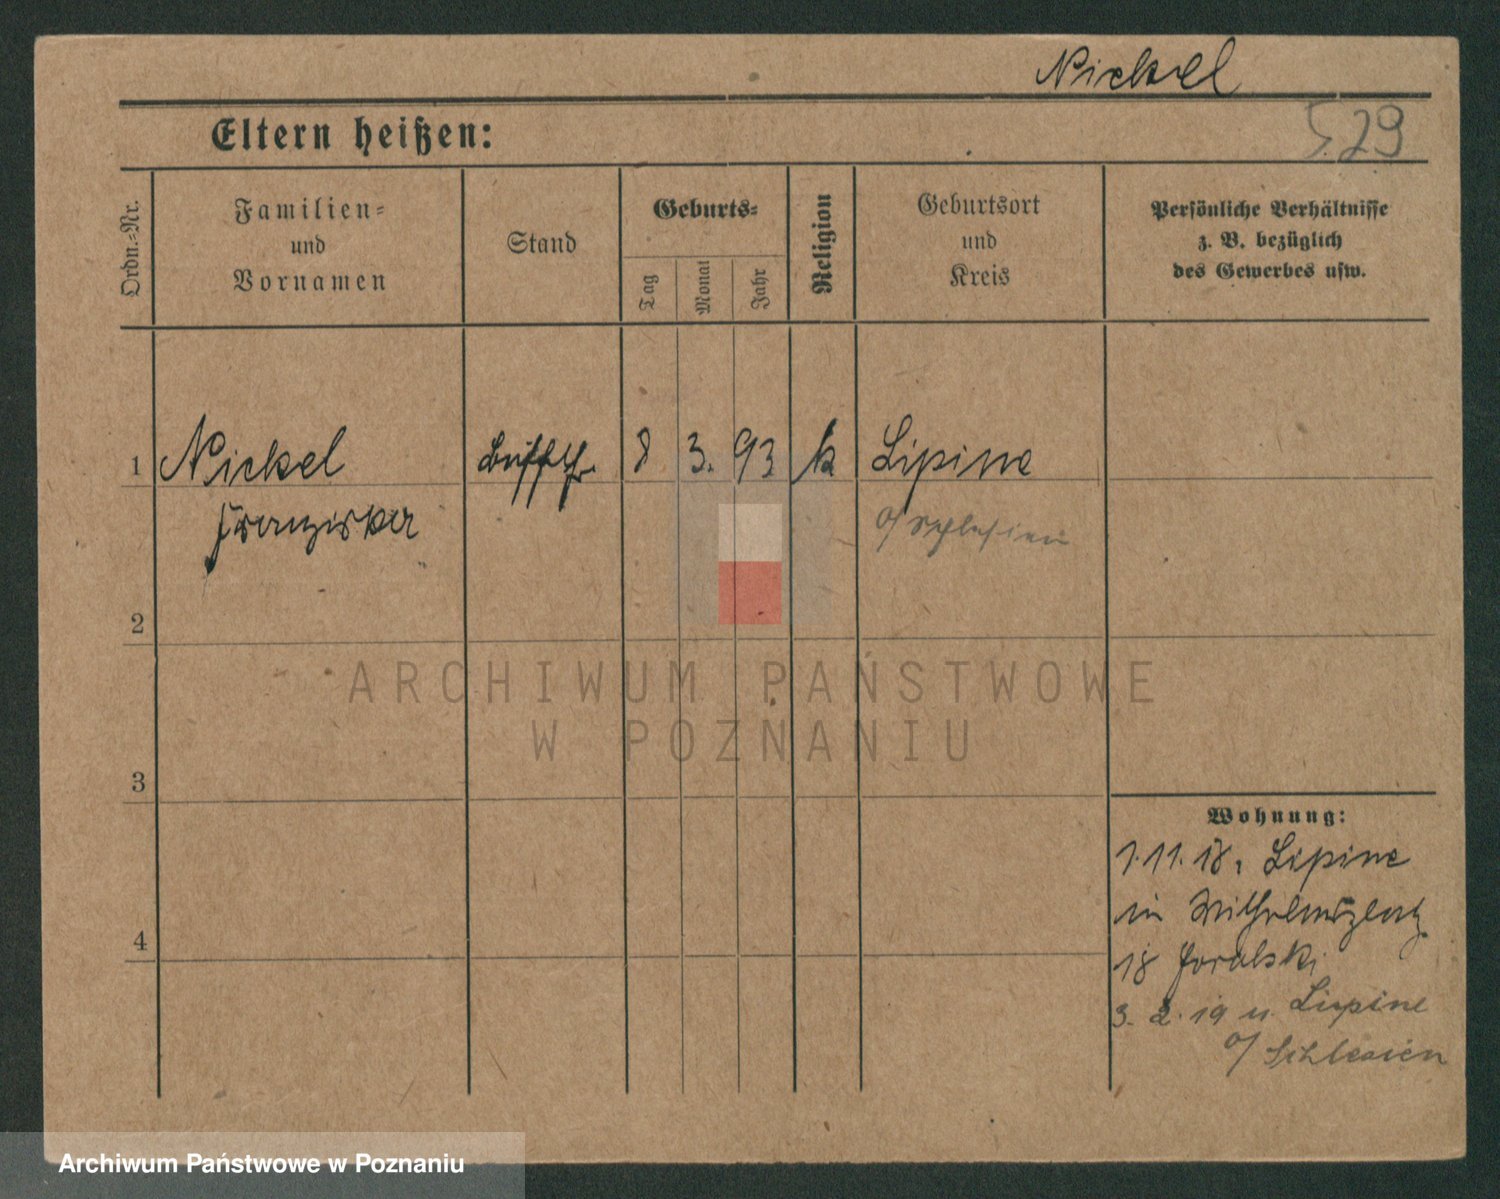 Nickel
Eltern heißen:
S. 29
Ordn.=Nr.
Familien=
und
Vornamen
Stand
Geburts=
Tag
Monat
Jahr
Religion
Geburtsort
und
Kreis
Persönliche Verhältnisse
z. B. bezüglich
des Gewerbes usw.
1
Nickel
8
3.
93
k
Lipine
Franziska
o/ Schlesien
2
ARCHIWUM PAŃSTWOWE
W POZNANIU
3
4
Wohnung:
1.11.18. Lipine
in Wilhelmsplatz
18
3. 2. 19 u. Lipine
o/ Schlesien
Archiwum Państwowe w Poznaniu